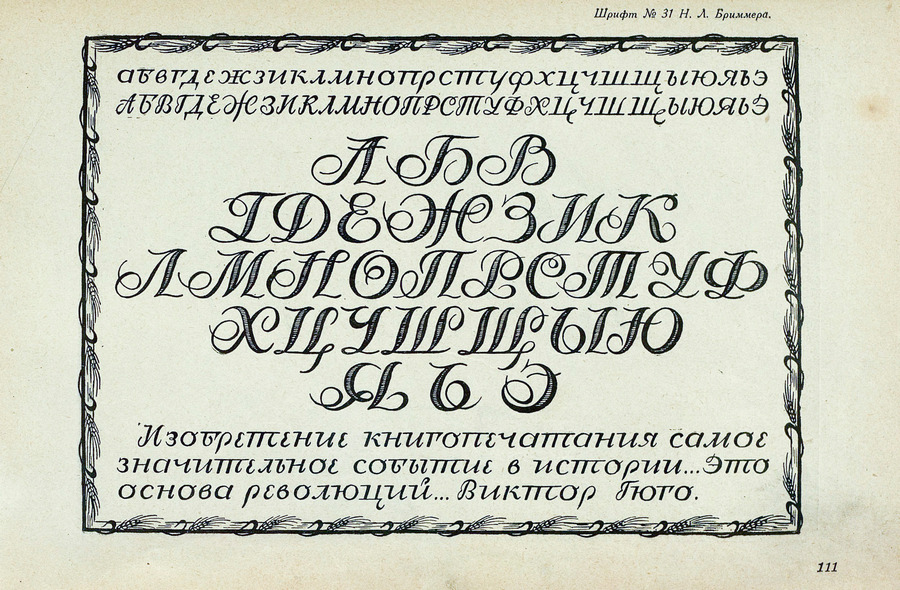 Шрифт № 31 Н. Л. Бриммера.
абвгдежзиклмнопрстуфхцчшщыюяьэ
АБВГДЕЖЗИКЛМНОПРСТУФХЦЧШЩЫЮЯЬЭ
АБВ
ГДЕЖЗИК
ЛМНОПРСТУФ
ХЦЧШЩЫЮ
ЯЬЭ
Изобретение книгопечатания самое
значительное событие в истории...Это
основа революций... Виктор Гюго.
111